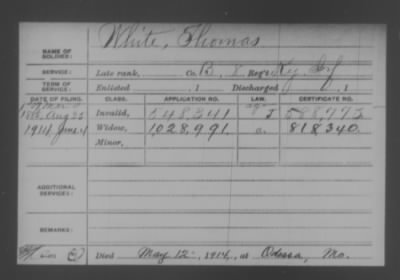 NAME OF SOLDIER: White, Thomas
SERVICE: Late rank, Co. B, 8 Reg't Ky. Inf
TERM OF SERVICE: Enlisted , 1 Discharged , 1
DATE OF FILING. CLASS. APPLICATION NO. LAW. CERTIFICATE NO.
1887, Aug 25 Invalid, 648,341 J
1914 June 4 Widow, 1028,991 a. 818340
Minor,
ADDITIONAL SERVICES:
REMARKS:
Died May 12, 1914, at Odessa, Mo.